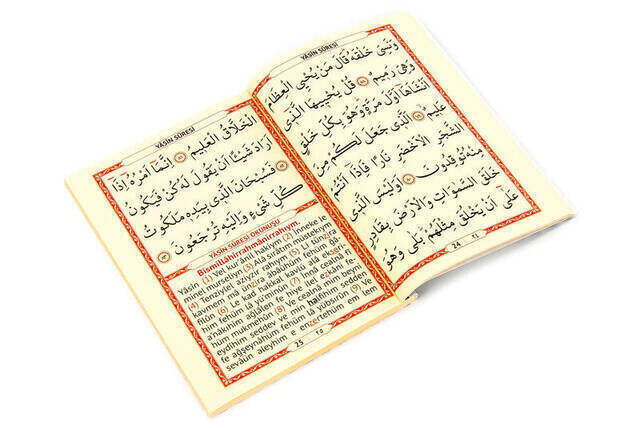 YÂSÎN SÛRESİ
وَنَسِيَ خَلْقَهُ قَالَ مَنْ يُحْيِي الْعِظَامَ
وَهِيَ رَمِيمٌ ٧٨ قُلْ يُحْيِيهَا الَّذِي
اَنْشَاَهَا اَوَّلَ مَرَّةٍ وَهُوَ بِكُلِّ خَلْقٍ
عَلِيمٌ ٧٩ اَلَّذِي جَعَلَ لَكُمْ مِنَ
الشَّجَرِ الْاَخْضَرِ نَارًا فَاِذَا اَنْتُمْ
مِنْهُ تُوقِدُونَ ٨٠ اَوَلَيْسَ الَّذِي
خَلَقَ السَّمٰوَاتِ وَالْاَرْضَ بِقَادِرٍ
عَلٰى اَنْ يَخْلُقَ مِثْلَهُمْ بَلٰى وَهُوَ
24 ٢٤
YÂSÎN SÛRESİ
الْخَلَّاقُ الْعَلِيمُ ٨١ اِنَّمَا اَمْرُهُ اِذَا
اَرَادَ شَيْئًا اَنْ يَقُولَ لَهُ كُنْ فَيَكُونُ
٨٢ فَسُبْحَانَ الَّذِي بِيَدِهِ مَلَكُوتُ
كُلِّ شَيْءٍ وَاِلَيْهِ تُرْجَعُونَ ٨٣
YÂSÎN SÛRESİ OKUNUŞU
Bismillâhirrahmânirrahîym.
Yâsîn (1) Vel kur'ânil hakiym (2) İnneke le
minel murseliyn (3) Alâ sırâtım müstekıym
(4) Tenziylel aziyzir rahıym (5) Li tünzira
kavmem mâ ünzira âbâühüm fehüm ğâ-
filûn (6) Le kad hakkal kavlü alâ ekserı-
him fehüm lâ yü'minûn (7) İnnâ cealnâ fî
a'nâkıhim ağlâlen fe hiye ilel ezkâni fe-
hüm mukmehûn (8) Ve cealnâ mim beyni
eydîhim seddev ve min halfihim sedden
fe ağşeynâhüm fehüm lâ yübsırûn (9) Ve
sevâün aleyhim e enzertehüm em lem
25 ٢٥